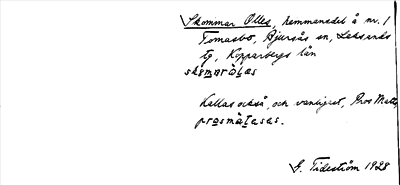 Skommar Olles, hemmanedel å nr. 1
Tomasbo, Bjursås sn, Leksands
tg, Kopparbergs län
skɷmaròl̥as
Kallas också, och vanligast, Pros Matts,
prosmàtasas.
G. Tideström 1928